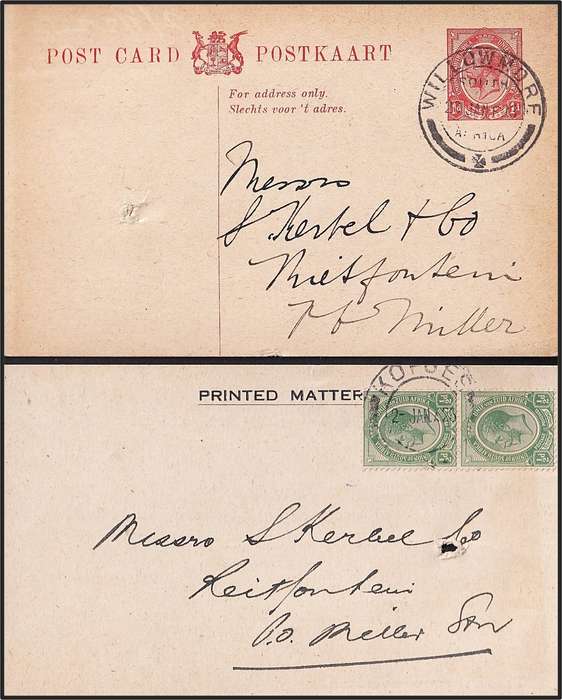 POST CARD POSTKAART
For address only.
Slechts voor 't adres.
WILLOWMORE
SOUTH
AFRICA
Messrs
S Kerbel & Co
Rietfontein
P O Miller
PRINTED MATTER
2- JAN. 25
Messrs S Kerbel Co
Rietfontein
P.O. Miller Stn